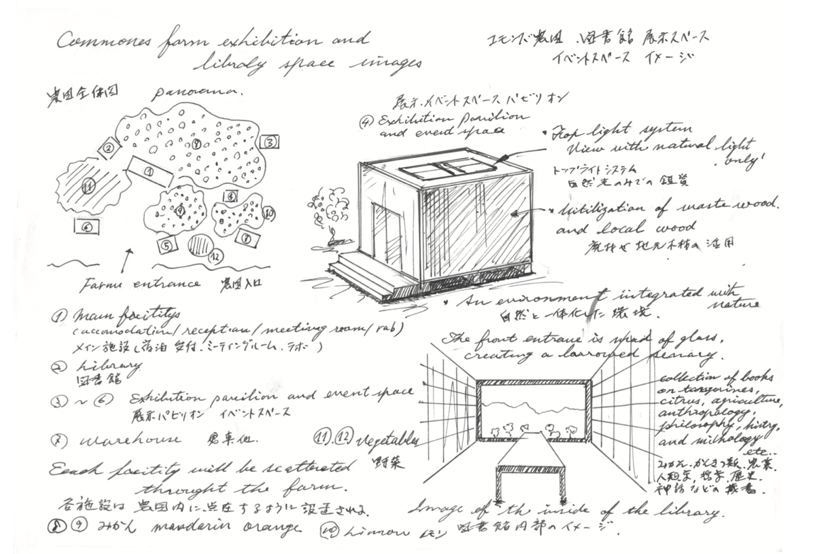 Commones farm exhibition and
libraly space images
コモンズ農園 図書館 展示スペース
イベントスペース イメージ
農園全体図 panorama.
展示.イベントスペース パビリオン
④ Exhibition pavilion
and event space
• Top light system
View with natural light
only!
トップライトシステム
自然光のみでの鑑賞
• Utilization of waste wood.
and local wood
廃材や地元木材の活用
• An environment integrated with
nature
自然と一体化した環境.
②
③
①
⑪
④
⑩
⑥
⑤
⑫
Farm entrance 農園入口
① Main facilitys
(accomodation/reception/meeting room/rab)
メイン施設(宿泊 受付.ミーティングルーム.ラボ)
② Library
図書館
③ ~ ⑥ Exhibition pavilion and event space
展示パビリオン イベントスペース
⑦ warehouse 倉庫他.
⑪.⑫ Vegetables
野菜
Each facility will be scattered
throught the farm.
各施設は農園内に点在するように設置される
⑧ ⑨ みかん mandarin orange ⑩ レモン
The front entrance is mad of glass,
creating a borrowed senary.
collection of books
on tangerines,
citrus, agriculture,
anthropology,
philosophy, histry,
and mithology
etc..
みかん.かんきつ類、農業
人類学,哲学,歴史.
神話などの蔵書.
Image of the inside of the library.
図書館内部のイメージ.